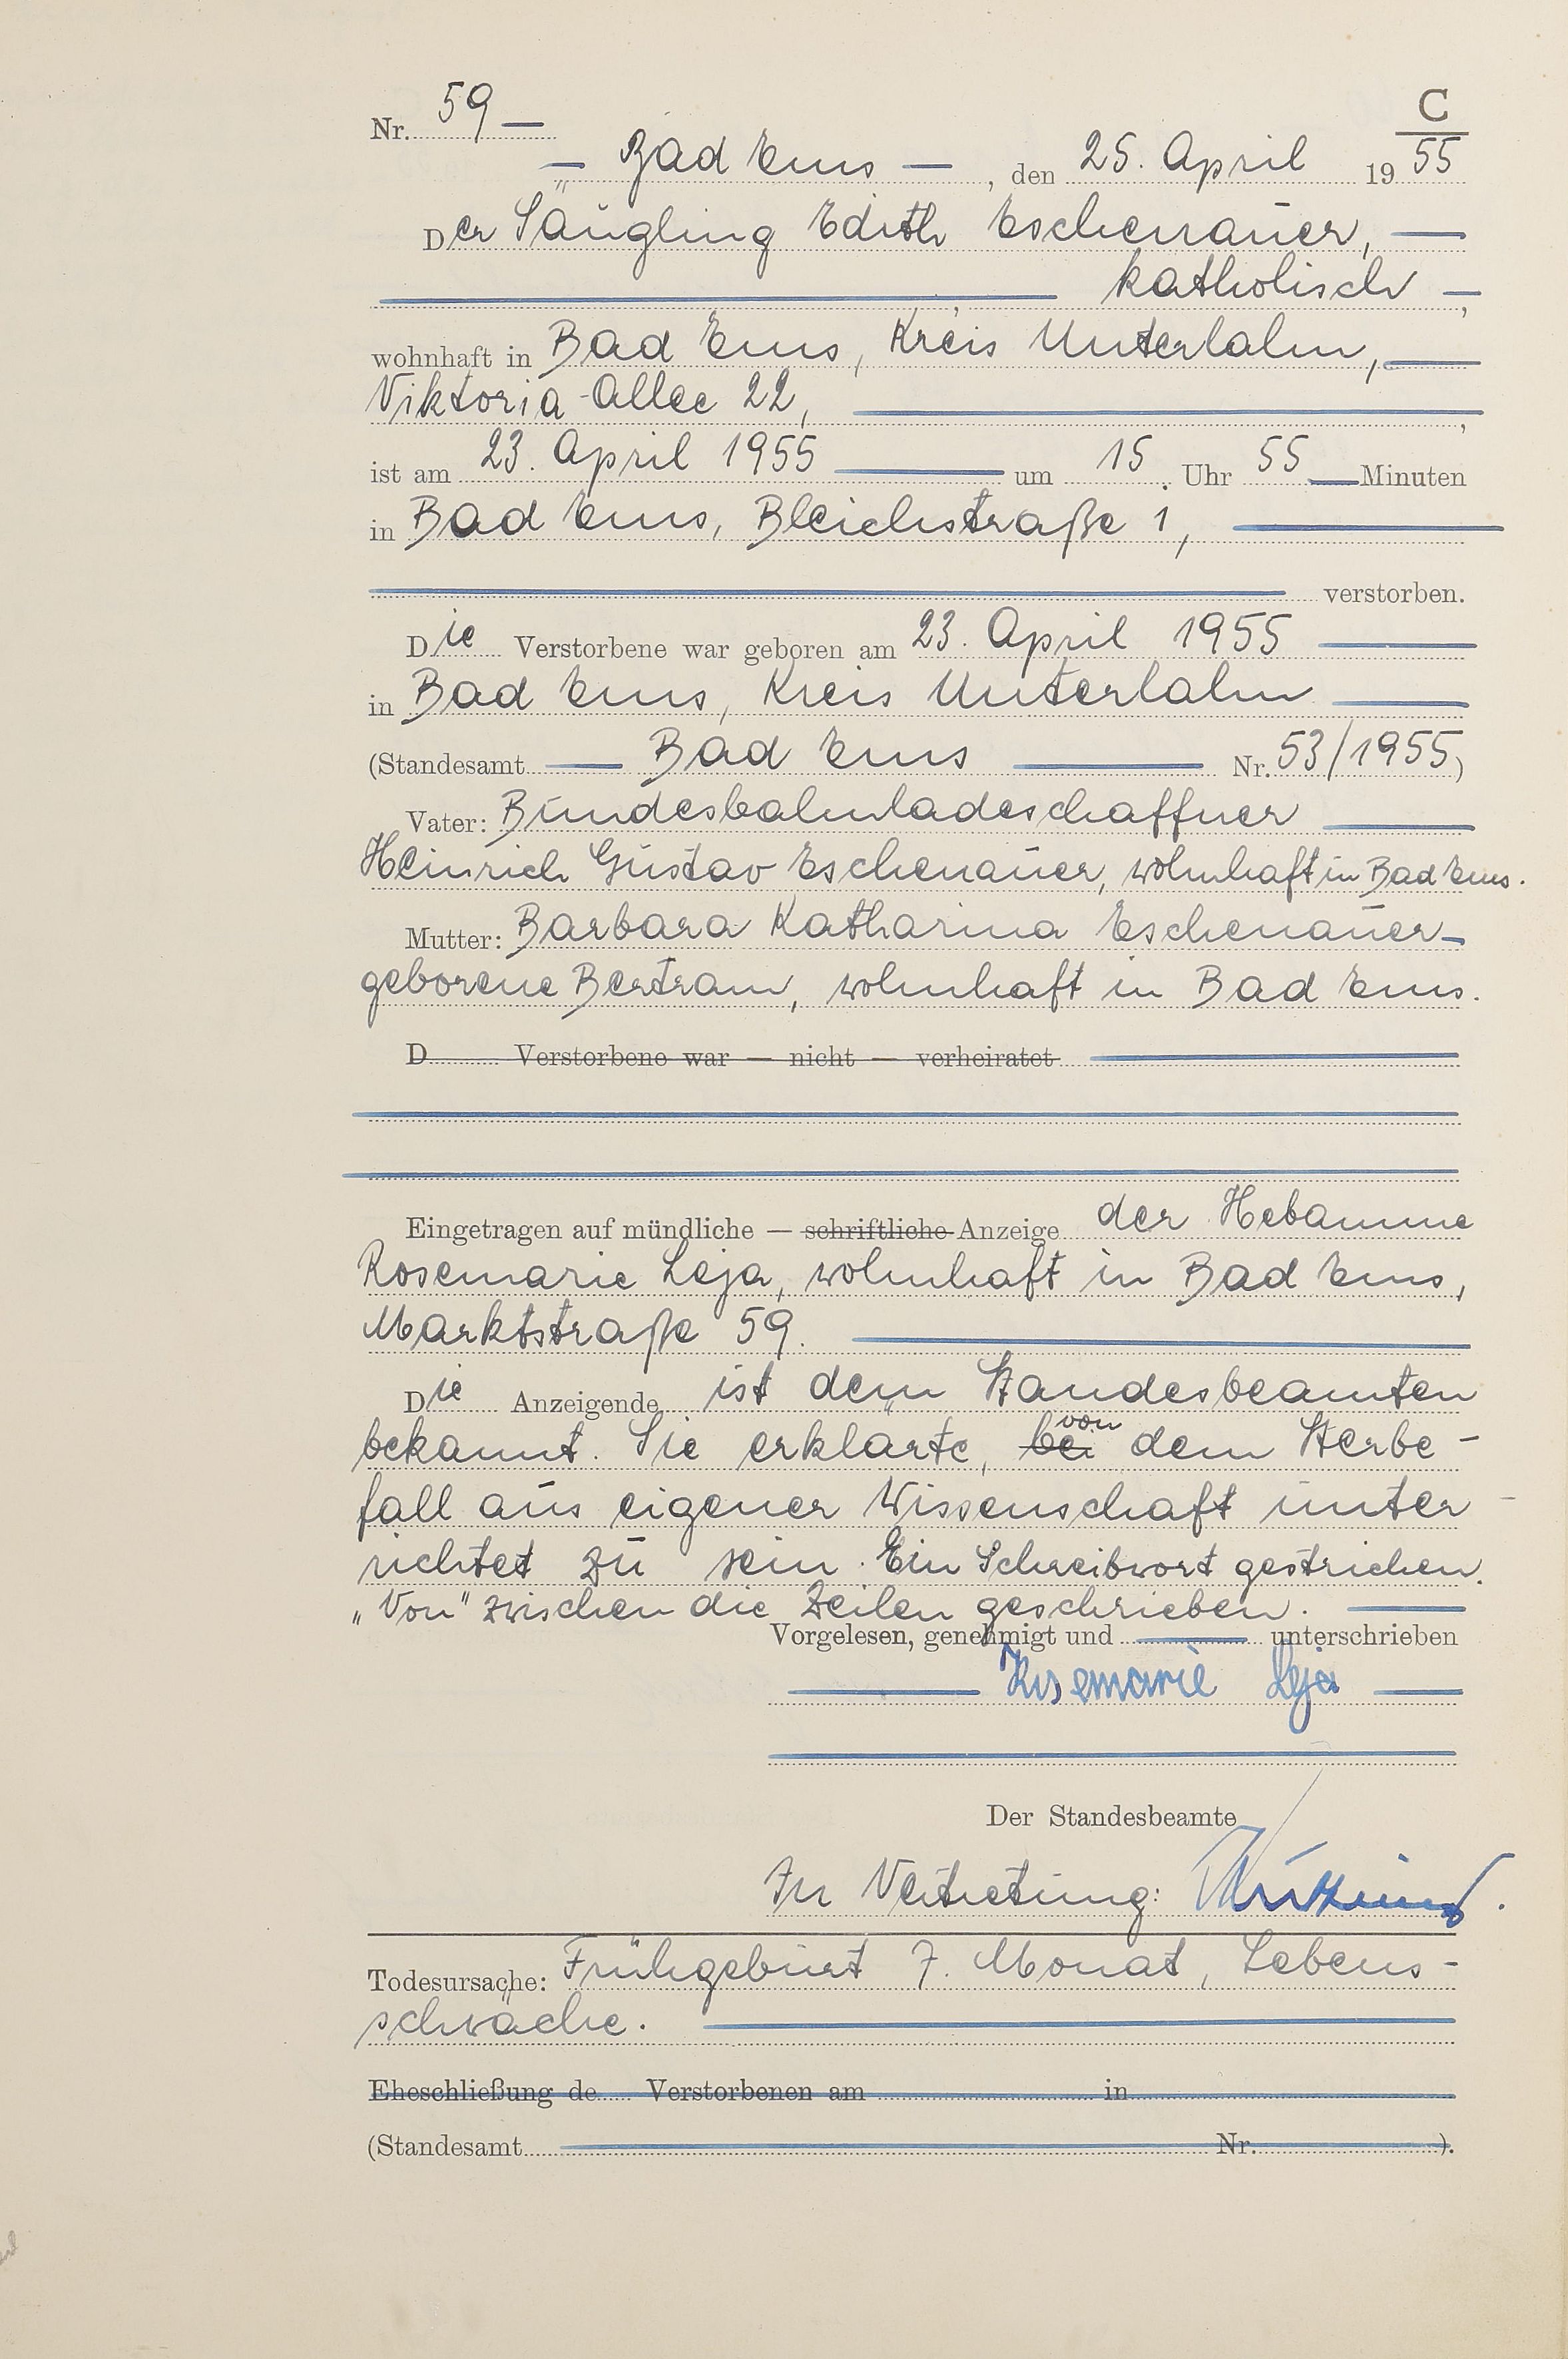 C
Nr. 59 —
— Bad Ems — , den 25. April 1955
Der Säugling Edith Eschenauer, —
katholisch —,
wohnhaft in Bad Ems, Kreis Unterlahn, —
Viktoria-Allee 22, ,
ist am 23. April 1955 — um 15 Uhr 55 — Minuten
in Bad Ems, Bleichstraße 1, —
verstorben.
Die Verstorbene war geboren am 23. April 1955 —
in Bad Ems, Kreis Unterlahn —
(Standesamt — Bad Ems — Nr. 53/1955)
Vater: Bundesbahnladeschaffner —
Heinrich Gustav Eschenauer, wohnhaft in Bad Ems.
Mutter: Barbara Katharina Eschenauer —
geborene Bertram, wohnhaft in Bad Ems.
D Verstorbene war — nicht — verheiratet
Eingetragen auf mündliche — schriftliche Anzeige der Hebamme
Rosemarie Leja, wohnhaft in Bad Ems,
Marktstraße 59. —
Die Anzeigende ist dem Standesbeamten
bekannt. Sie erklärte, bei von dem Sterbe-
fall aus eigener Wissenschaft unter-
richtet zu sein. Ein Schreibwort gestrichen.
„Von" zwischen die Zeilen geschrieben. —
Vorgelesen, genehmigt und — unterschrieben
— Rosemarie Leja —
Der Standesbeamte
In Vertretung:
Todesursache: Frühgeburt 7. Monat, Lebens-
schwäche. —
Eheschließung de Verstorbenen am in
(Standesamt Nr. ).